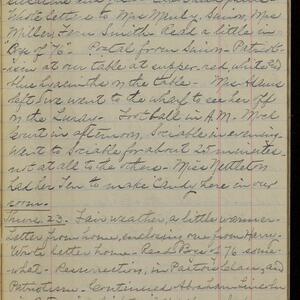 Wrote letters to Miss Manly, Saïnin, Mrs
Miller, Fern Smith. Read a little in
Boys of '76. Postal from Saïnin - Patriot-
ism at our table at supper, red, white and
blue hyacinths on the table. Mrs. Adams
left. Six went to the wharf to see her off
on the Lursay. Football in A.M. Mock
court in afternoon, Sociable in evening.
Went to Sociable for about 20 minutes,
not at all to the others. Miss Nettleton
had her Ten to make candy here in our
room.
June 23. Fair weather, a little warmer.
Letter from home, enclosing one from Henry.
Wrote letter home. Read Boys of '76 some-
what. Resurrection, in Pastor's class, and
Patriotism. Continued Abraham Lincoln